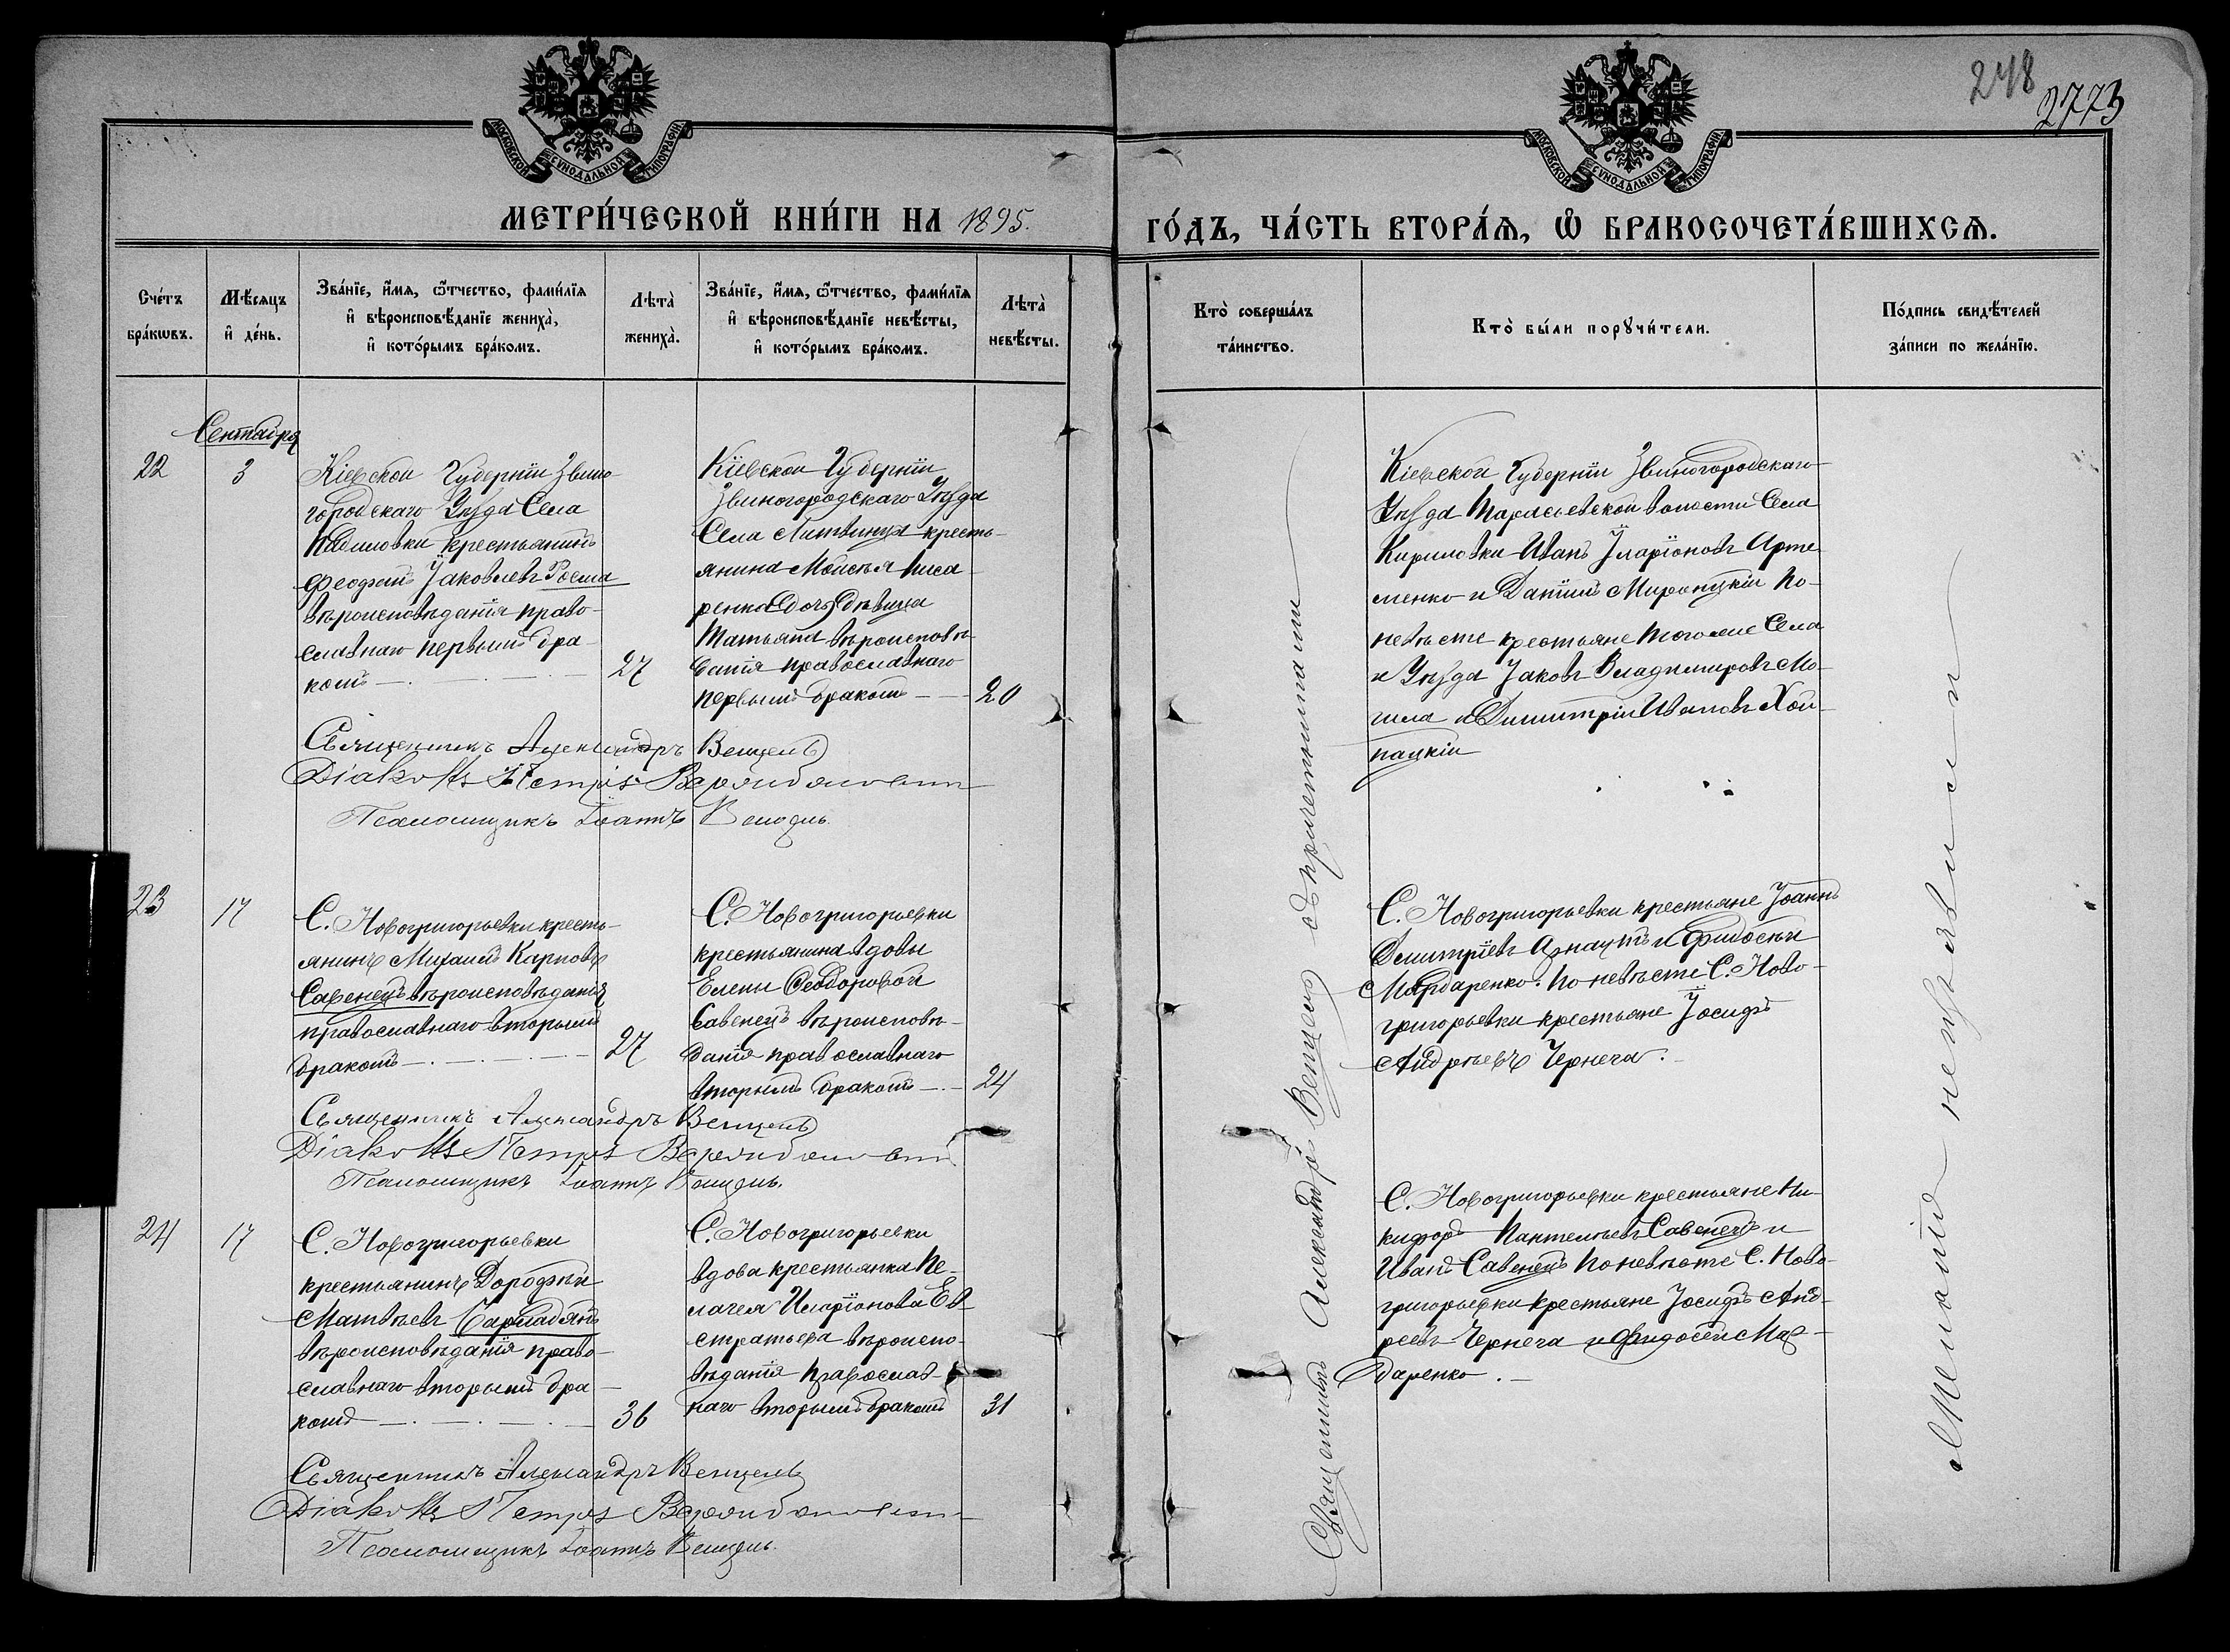 248
2773
МОСКОВСКОЙ СУНОДАЛЬНОЙ ТИПОГРАФІИ
МОСКОВСКОЙ СУНОДАЛЬНОЙ ТИПОГРАФІИ
МЕТРИ́ЧЕСКОЙ КНИ́ГИ НА 1895.
ГО́ДЪ, ЧА́СТЬ ВТОРА́Ѧ, Ѽ БРАКОСОЧЕТА́ВШИХСѦ.
Сче́тъ бра́кѡвъ.
Мѣ́сяцъ и҆ де́нь.
Зва́нїе, и҆́мѧ, ѻ҆́тчество, фами́лїѧ
и҆ вѣроисповѣ́данїе жениха̀,
и҆ кото́рымъ бра́комъ.
Лѣта̀ жениха̀.
Зва́нїе, и҆́мѧ, ѻ҆́тчество, фами́лїѧ
и҆ вѣроисповѣ́данїе невѣ́сты,
и҆ кото́рымъ бра́комъ.
Лѣта̀ невѣ́сты.
Кто̀ соверша́лъ та́инство.
Кто̀ бы́ли порꙋчи́тели.
По́дпись свидѣ́телей
за́писи по жела́нїю.
Сентября
22
3
Кіевской Губерніи Звино-
городскаго Уѣзда Села
крестьянинъ
Яковлевъ
вѣроисповѣданія право-
славнаго первымъ бра-
комъ
27
Кіевской Губерніи
Звиногородскаго Уѣзда
Села Литвинца кресть-
янина Моисея Писа-
ренко дочь дѣвица
Татьяна вѣроисповѣ-
данія православнаго
первымъ бракомъ
20
Кіевской Губерніи Звиногородскаго
Уѣзда волости Села
Кириловки Иванъ Иларіоновъ Арте-
менко и Даніилъ По
невѣсте крестьяне Тогоже Села
и Уѣзда Яковъ Владимировъ Мо-
гила и Димитрій Ивановъ
пацкій
Священникъ Александръ Венцель
Діаконъ Петръ
Псаломщикъ Іоаннъ
23
17
С. Новогригорьевки кресть-
янинъ Михаилъ Карповъ
Савенецъ вѣроисповѣданія
православнаго вторымъ
бракомъ
27
С. Новогригорьевки
крестьянина вдовы
Елены Феодоровой
Савенецъ вѣроисповѣ-
данія православнаго
вторымъ бракомъ
24
С. Новогригорьевки крестьяне Іоаннъ
Димитріевъ Арнаутъ и Фидосѣй
Мардаренко. По невѣсте С. Ново-
григорьевки крестьяне Іосифъ
Андреевъ Чернега.
Священникъ Александръ Венцель
Діаконъ Петръ
Псаломщикъ Іоаннъ
24
17
С. Новогригорьевки
крестьянинъ Дорофѣй
Матвѣевъ
вѣроисповѣданія право-
славнаго вторымъ бра-
комъ
36
С. Новогригорьевки
вдова крестьянка Пе-
лагея Иларіонова Ев-
стратьева вѣроиспо-
вѣданія православ-
наго вторымъ бракомъ
31
С. Новогригорьевки крестьяне Ни-
кифоръ Пантелѣевъ Савенецъ и
Иванъ Савенецъ По невѣсте С. Ново-
григорьевки крестьяне Іосифъ Анд-
реевъ Чернега и Фидосѣй Мар-
даренко.
Священникъ Александръ Венцель
Діаконъ Петръ
Псаломщикъ Іоаннъ
Священникъ Александръ Венцель съ причетниками
Желанію не изъявили